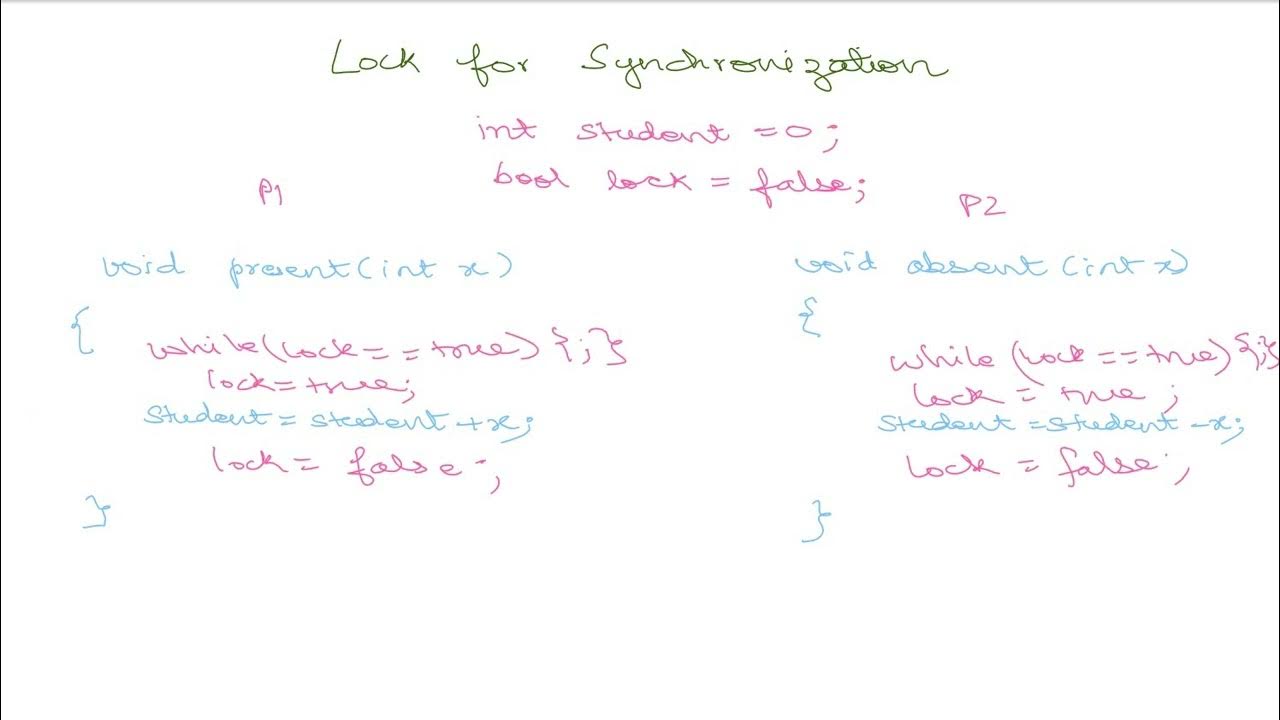 Lock for Synchronization
int student = 0;
bool lock = false;
P1
void present(int x)
{
while(lock == true) {;}
lock = true;
Student = student + x;
lock = false;
}
P2
void absent(int x)
{
while (lock == true) {;}
lock = true;
Student = student - x;
lock = false;
}